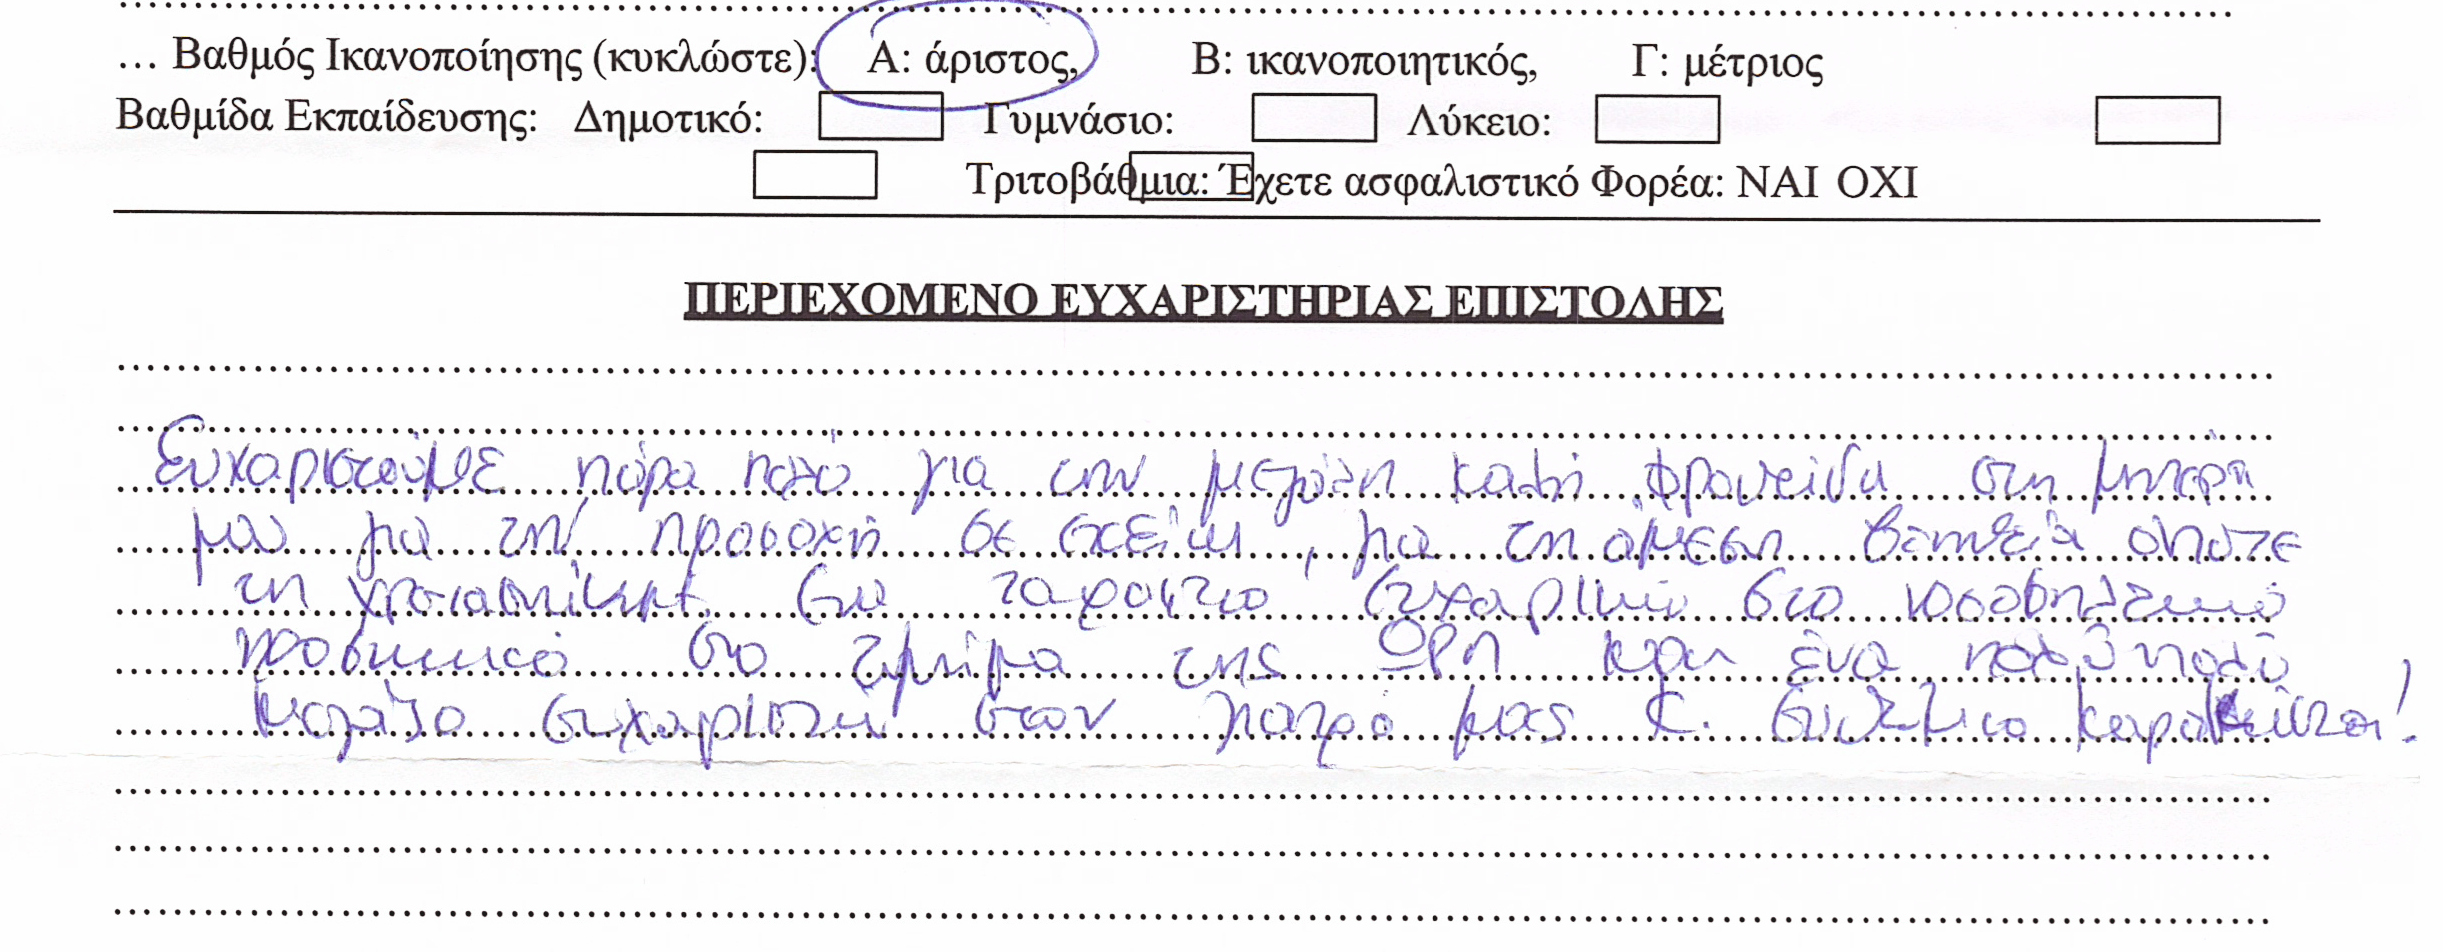 ... Βαθμός Ικανοποίησης (κυκλώστε): Α: άριστος, Β: ικανοποιητικός, Γ: μέτριος
Βαθμίδα Εκπαίδευσης: Δημοτικό: Γυμνάσιο: Λύκειο:
Τριτοβάθμια: Έχετε ασφαλιστικό Φορέα: ΝΑΙ ΟΧΙ
ΠΕΡΙΕΧΟΜΕΝΟ ΕΥΧΑΡΙΣΤΗΡΙΑΣ ΕΠΙΣΤΟΛΗΣ
Ευχαριστούμε πάρα πολύ για την μεγάλη καλή φροντίδα στη μητέρα
μου για τη προσοχή σε , για τη άμεση βοήθεια όποτε
τη στο νοσηλευτικό
προσωπικό στο τμήμα της ΩΡΛ και ένα πολύ πολύ
μεγάλο ευχαριστώ στον γιατρό μας κ.